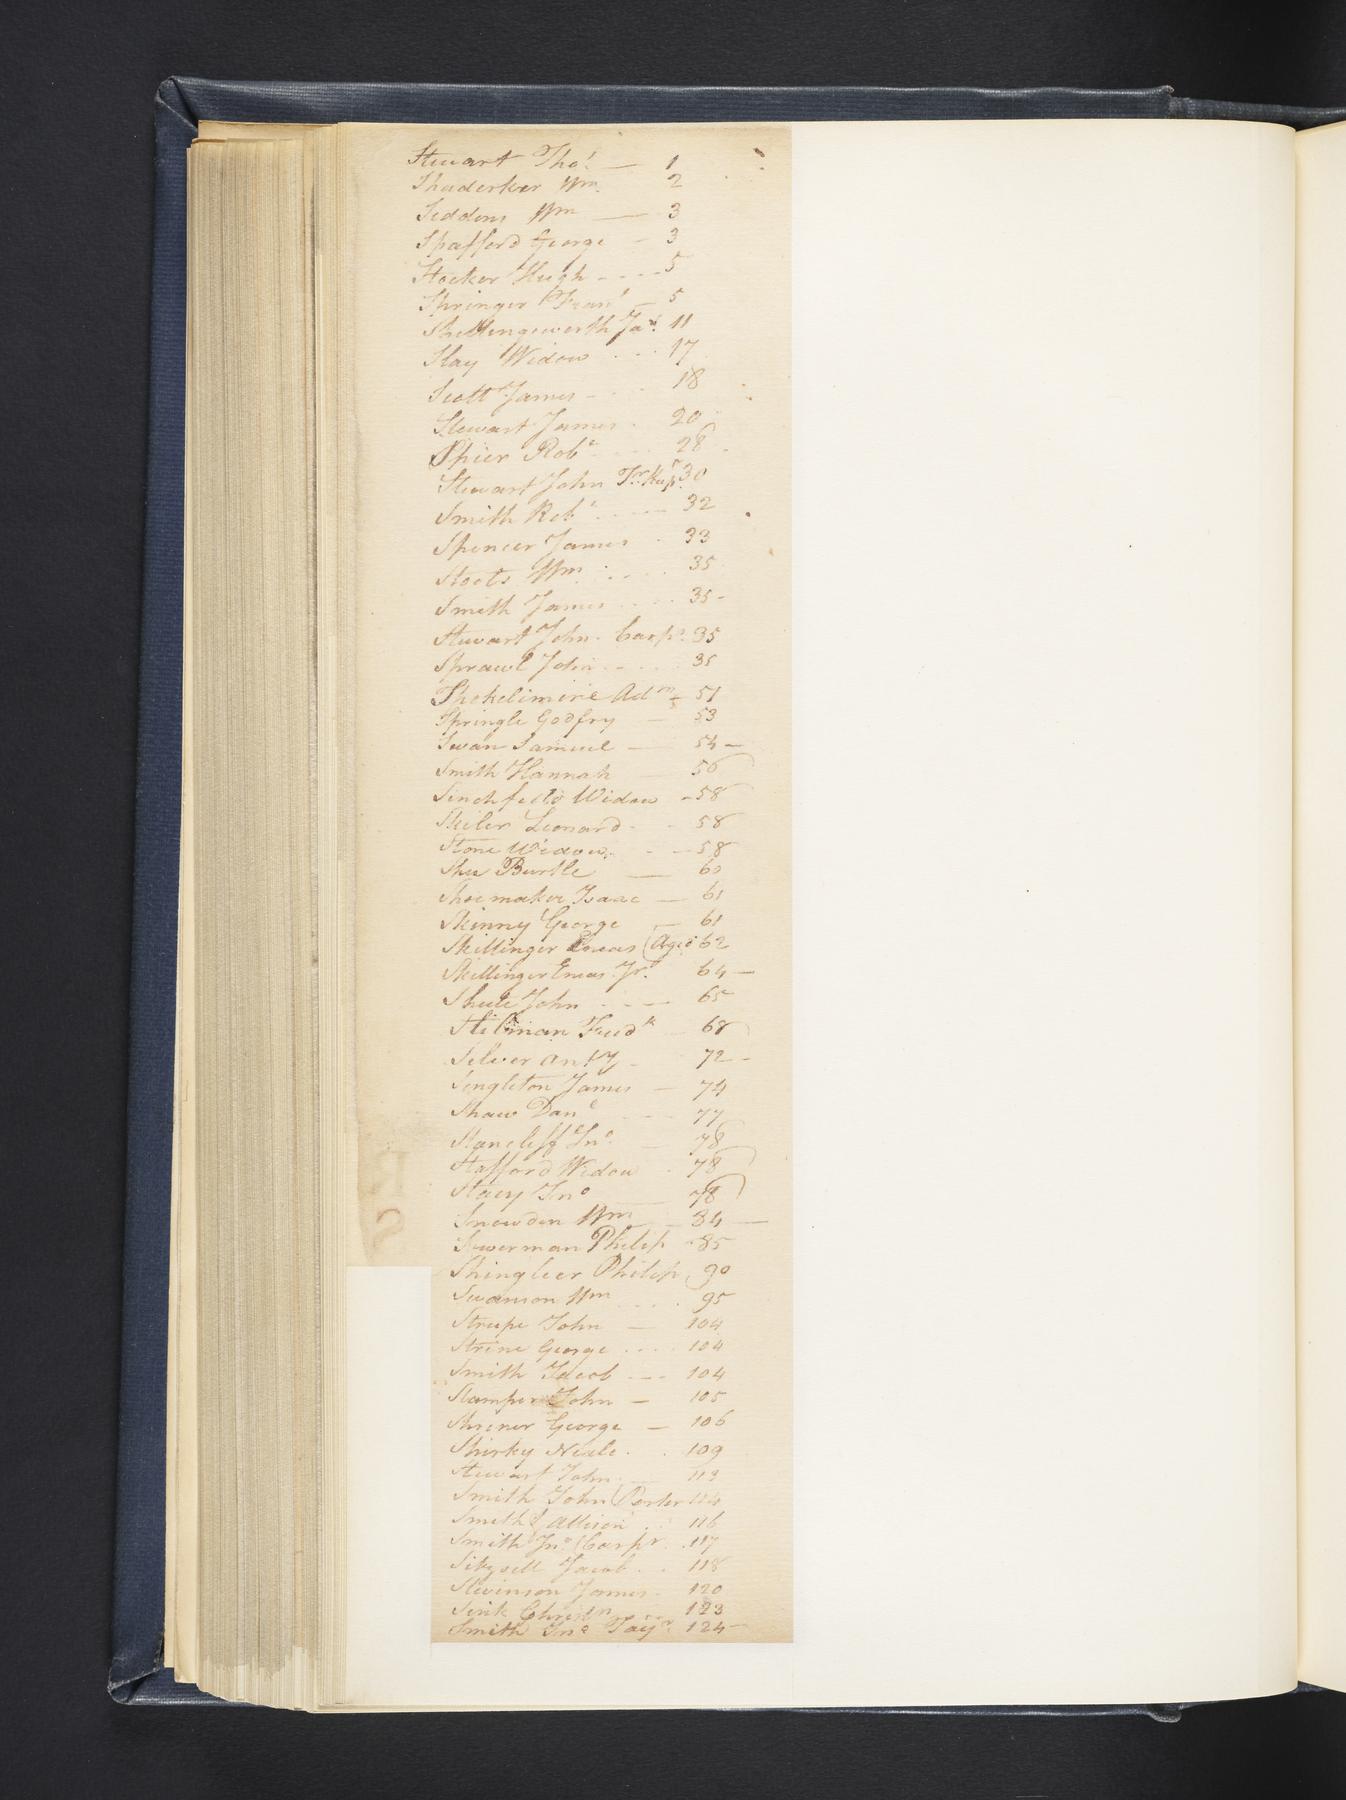 Stewart Thos. — 1
Shaderker Wm. 2
Seddons Wm — 3
Spafford George - 3
Stocker Hugh - - - - 5
Springer Frans — 5
Skellengeworth Jas. 11
Slay Widow . . . 17
Scott James - . . 18
Stewart James . 20
Spier Robt - . . . 28
Stewart John Tr. Kepr. 30
Smith Robt . - - - 32
Spencer James . 33
Stoots Wm . . . . 35
Smith James . . . . 35 -
Stewart John . Carpr. 35
Sprawl John - - . . . 35
Adm 51
Springle Godfry — 53
Swan Samuel — 54 —
Smith Hannah — 56
Sinchfield Widow - 58
Skiler Leonard - - 58
Stone Widow . - - 58
Shu Burtle — 60
Shoemaker Isaac — 61
Skinny George — 61
Skillinger Eneas (Aged 62
Skillinger Eneas Jr. 64 —
Shute John . - — 65
Stilman Fredk 68
Silver Anty - 72 -
Singleton James — 74
Shaw Danl - - - 77
Stancliff Jno. — 78
Stafford Widow . 78
Stacy Jno — 78
Snowden Wm — 84 —
Philip - 85
Shingleer Philip 90
Swanson Wm . . . . 95
Strupe John — 104
Strine George . . . . 104
Smith Jacob - - - 104
Stamper John — 105
Shriner George — 106
Shirky Neale . . 109
Stewart John . — 113
Smith John (Porter 114
Smith & Allison . . 116
Smith Jno. (Carpr . 117
Sitzsell Jacob . . 118
Stevinson James . 120
Sink Christn 123
Smith Jno Taylr. 124 -